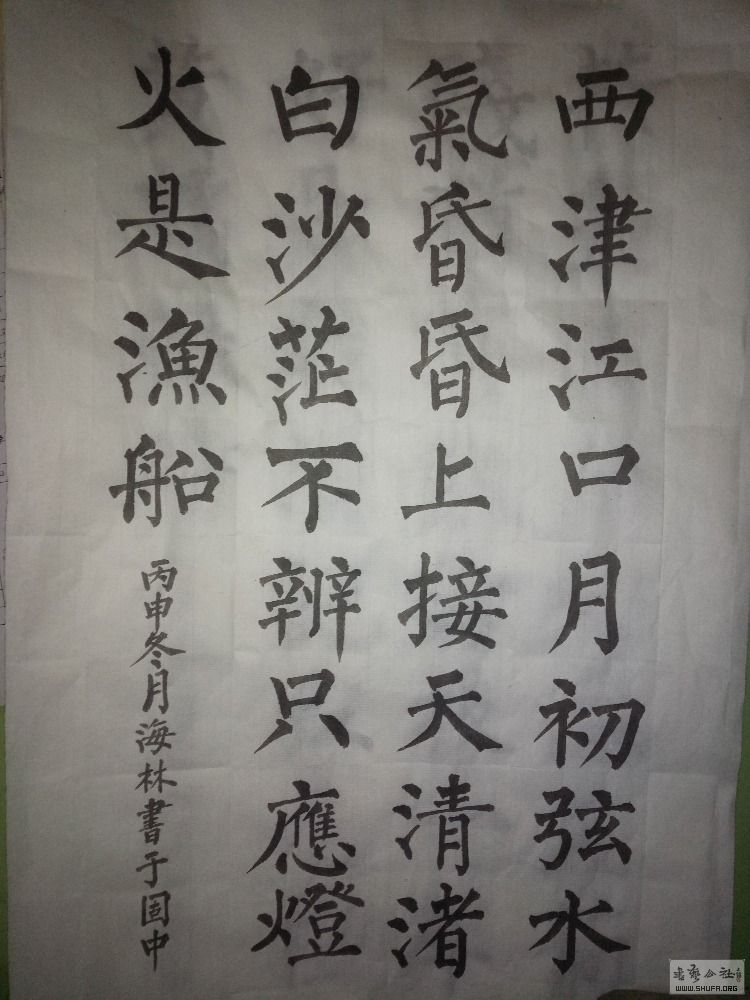 西津江口月初弦水
氣昏昏上接天清渚
白沙茫不辨只應燈
火是漁船
丙申冬月海林書于固中
WWW.SHUFA.ORG